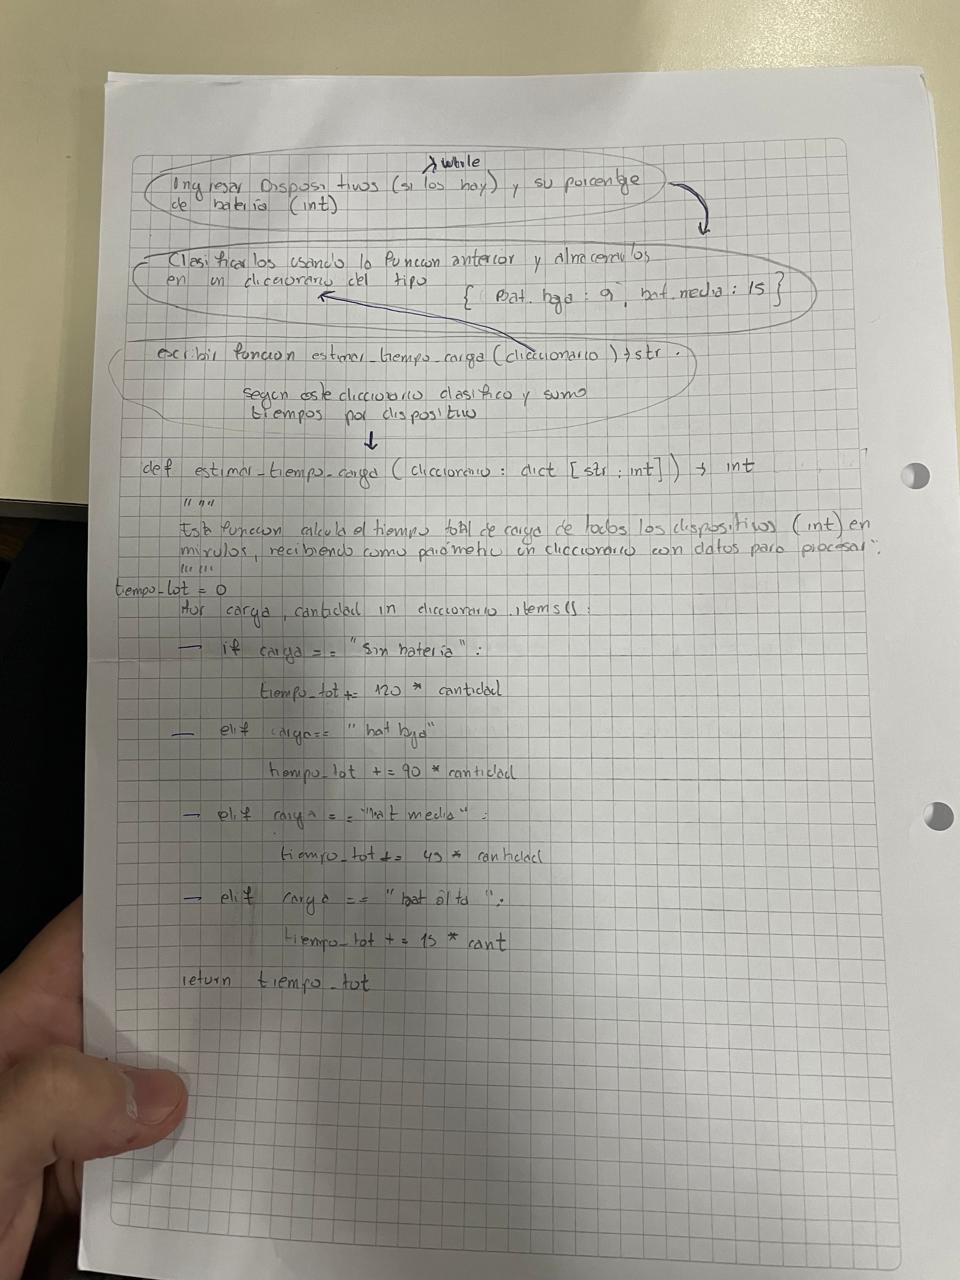 while
Ingresar Dispositivos (si los hay) y su porcentge
de bateria (int)
Clasificarlos usando la funcion anterior y almacenarlos
en un diccionario del tipo
{ Bat. baja : 9, bat. media : 15 }
escribir funcion estimar_tiempo_carga (diccionario) → str.
segun este diccionario clasifico y sumo
tiempos por dispositivo
def estimar_tiempo_carga (diccionario : dict [str : int]) → int
""""
Esta funcion calcula el tiempo total de carga de todos los dispositivos (int) en
minutos, recibiendo como parametro un diccionario con datos para procesar.
"""""
tiempo_tot = 0
for carga, cantidad in diccionario.items():
— if carga == "Sin bateria":
tiempo_tot += 120 * cantidad
— elif carga == "bat baja"
tiempo_tot += 90 * cantidad
— elif carga == "bat media":
tiempo_tot += 45 * cantidad
— elif carga == "bat alta":
tiempo_tot += 15 * cant
return tiempo_tot